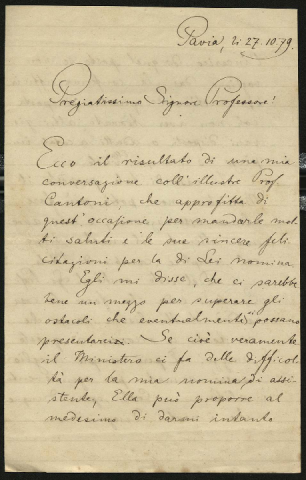 Pavia, li 27. 10. 79.
Pregiatissimo Signore Professore!
Ecco il risultato di una mia
conversazione coll'illustre Prof.
Cantoni, che approfitta di
quest'occasione per mandarle mol-
ti saluti e le sue sincere feli
citazioni per la di Lei nomina.
Egli mi disse, che ci sarebbe
bene un mezzo per superare gli
ostacoli che eventualmente possano
presentarsi. Se cioè veramente
il Ministero ci fa delle difficol-
tà per la mia nomina di assi-
stente, Ella può proporre al
medesimo di darmi intanto